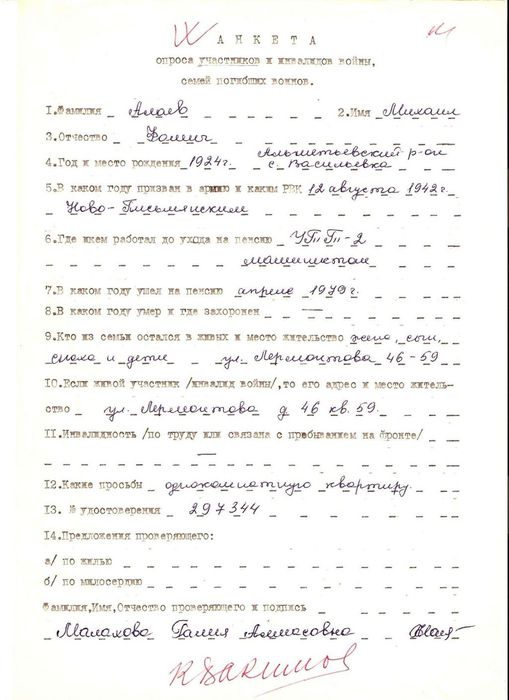 АНКЕТА
опроса участников и инвалидов войны,
семей погибших воинов.
1.Фамилия Алаев 2.Имя Михаил
3.Отчество Фомич
4.Год и место рождения 1924г. Альметьевский р-он
с. Васильевка
5.В каком году призван в армию и каким РВК 12 августа 1942г.
Ново-Письмянским
6.Где икем работал до ухода на пенсию УПП-2
машинистом
7.В каком году ушел на пенсию апреле 1979г.
8.В каком году умер и где захоронен —
9.Кто из семьи остался в живых и место жительство жена, сын,
сноха и дети ул. Лермонтова 46-59
10.Если живой участник /инвалид войны/,то его адрес и место житель-
ство ул. Лермонтова д 46 кв. 59.
11.Инвалидность /по труду или связана с пребыванием на фронте/
—
12.Какие просьбы однокомнатную квартиру.
13. № удостоверения 297344
14.Предложения проверяющего:
а/ по жилью
б/ по милосердию
Фамилия,Имя,Отчество проверяющего и подпись
Малахова Галия Алмасовна